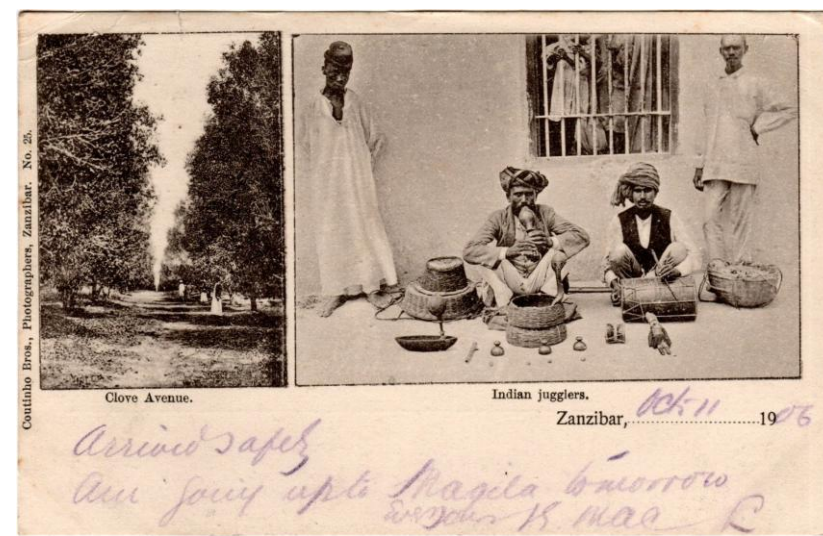 Coutinho Bros., Photographers, Zanzibar. No. 25.
Clove Avenue.
Indian jugglers.
Zanzibar, Oct 11 1906
Arrived safely
am going up to Magila tomorrow